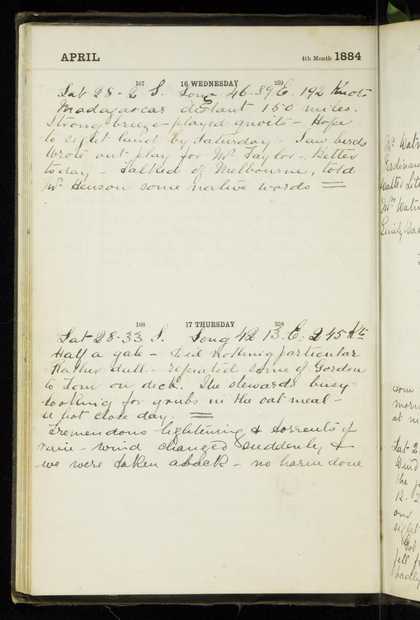 APRIL 4th Month 1884
107 16 WEDNESDAY 259
Lat 28-2 S. Long 46.39 E. 192 Knots
Madagascar distant 150 miles.
Strong breeze - played quoits - Hope
to sight land by Saturday - Saw birds
Wrote out play for Mr Taylor - Better
today - Talked of Melbourne, told
Mr Henson some native words =
108 17 THURSDAY 258
Lat 28-33 S. Long 42 13. E. 245 Kts
Half a gale - Did nothing particular
Rather dull - repeated some of Gordon
to Tom on deck. The stewards busy
looking for grubs in the oat meal -
a hot close day. =
Tremendous lightening & torrents of
rain - wind changed suddenly &
we were taken aback - no harm done